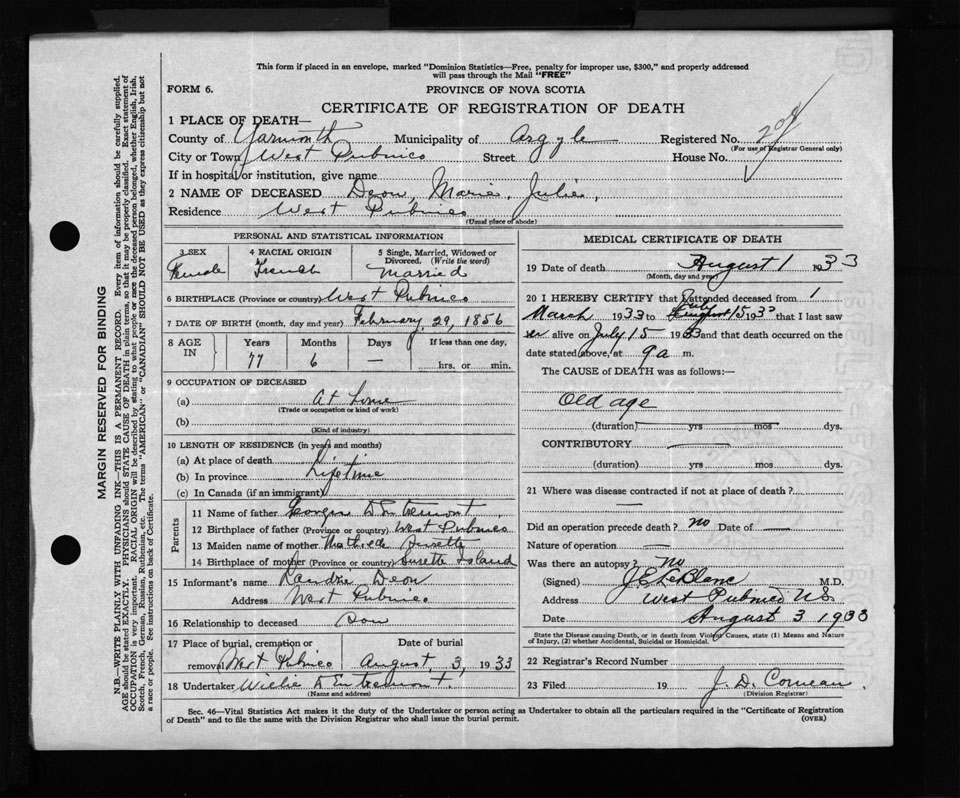 This form if placed in an envelope, marked "Dominion Statistics—Free, penalty for improper use, $300," and properly addressed
will pass through the Mail "FREE"
FORM 6.
PROVINCE OF NOVA SCOTIA
CERTIFICATE OF REGISTRATION OF DEATH
1 PLACE OF DEATH—
County of Yarmouth Municipality of Argyle Registered No.
(For use of Registrar General only)
City or Town West Pubnico Street House No.
If in hospital or institution, give name
2 NAME OF DECEASED Deon, Marie, Julie,
Residence West Pubnico
(Usual place of abode)
PERSONAL AND STATISTICAL INFORMATION
3 SEX 4 RACIAL ORIGIN 5 Single, Married, Widowed or Divorced. (Write the word)
Female French Married
6 BIRTHPLACE (Province or country) West Pubnico
7 DATE OF BIRTH (month, day and year) February, 29, 1856
8 AGE IN Years Months Days If less than one day,
77 6 — hrs. or min.
9 OCCUPATION OF DECEASED
(a) At home
(Trade or occupation or kind of work)
(b)
(Kind of industry)
10 LENGTH OF RESIDENCE (in years and months)
(a) At place of death
(b) In province Lifetime
(c) In Canada (if an immigrant)
Parents
11 Name of father D'Entremont
12 Birthplace of father (Province or country) West Pubnico
13 Maiden name of mother Mathilde
14 Birthplace of mother (Province or country) Surette Island
15 Informant's name Deon
Address West Pubnico
16 Relationship to deceased Son
17 Place of burial, cremation or removal Date of burial
West Pubnico August, 3, 1933
18 Undertaker Willie D'Entremont.
(Name and address)
MEDICAL CERTIFICATE OF DEATH
19 Date of death August 1 1933
(Month, day and year)
20 I HEREBY CERTIFY that I attended deceased from 1
March 1933 to July 15 1933 that I last saw
her alive on July 15 1933 and that death occurred on the
date stated above, at 9 a m.
The CAUSE of DEATH was as follows:—
Old age
(duration) yrs mos dys.
CONTRIBUTORY
(duration) yrs mos dys.
21 Where was disease contracted if not at place of death?
Did an operation precede death? no Date of —
Nature of operation —
Was there an autopsy? No
(Signed) J E LeBlanc M.D.
Address West Pubnico N.S
Date August 3 1933
State the Disease causing Death, or in death from Violent Causes, state (1) Means and Nature
of Injury, (2) whether Accidental, Suicidal or Homicidal.
22 Registrar's Record Number
23 Filed 19 J. D. Comeau
(Division Registrar)
Sec. 46—Vital Statistics Act makes it the duty of the Undertaker or person acting as Undertaker to obtain all the particulars required in the "Certificate of Registration
of Death" and to file the same with the Division Registrar who shall issue the burial permit.
(OVER)
MARGIN RESERVED FOR BINDING
N.B.—WRITE PLAINLY WITH UNFADING INK—THIS IS A PERMANENT RECORD. Every item of information should be carefully supplied.
AGE should be stated EXACTLY. PHYSICIANS should STATE CAUSE OF DEATH in plain terms, so that it may be properly classified. Exact statement of
OCCUPATION is very important. RACIAL ORIGIN will be described by stating to what people or race the deceased person belonged, whether English, Irish,
Scotch, French, German, Russian, Ruthenian, etc. The terms "AMERICAN" or "CANADIAN" SHOULD NOT BE USED as they express citizenship but not
a race or people. See instructions on back of Certificate.